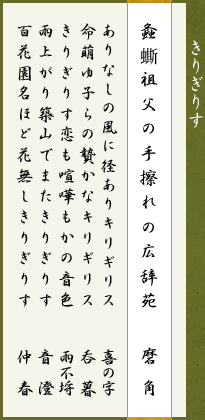 きりぎりす
螽蟖祖父の手擦れの広辞苑 磨角
ありなしの風に径ありキリギリス 喜の字
命萌ゆ子らの贄かなキリギリス 呑暮
きりぎりす恋も喧嘩もかの音色 雨不埒
雨上がり築山でまたきりぎりす 音澄
百花園名ほど花無しきりぎりす 仲春